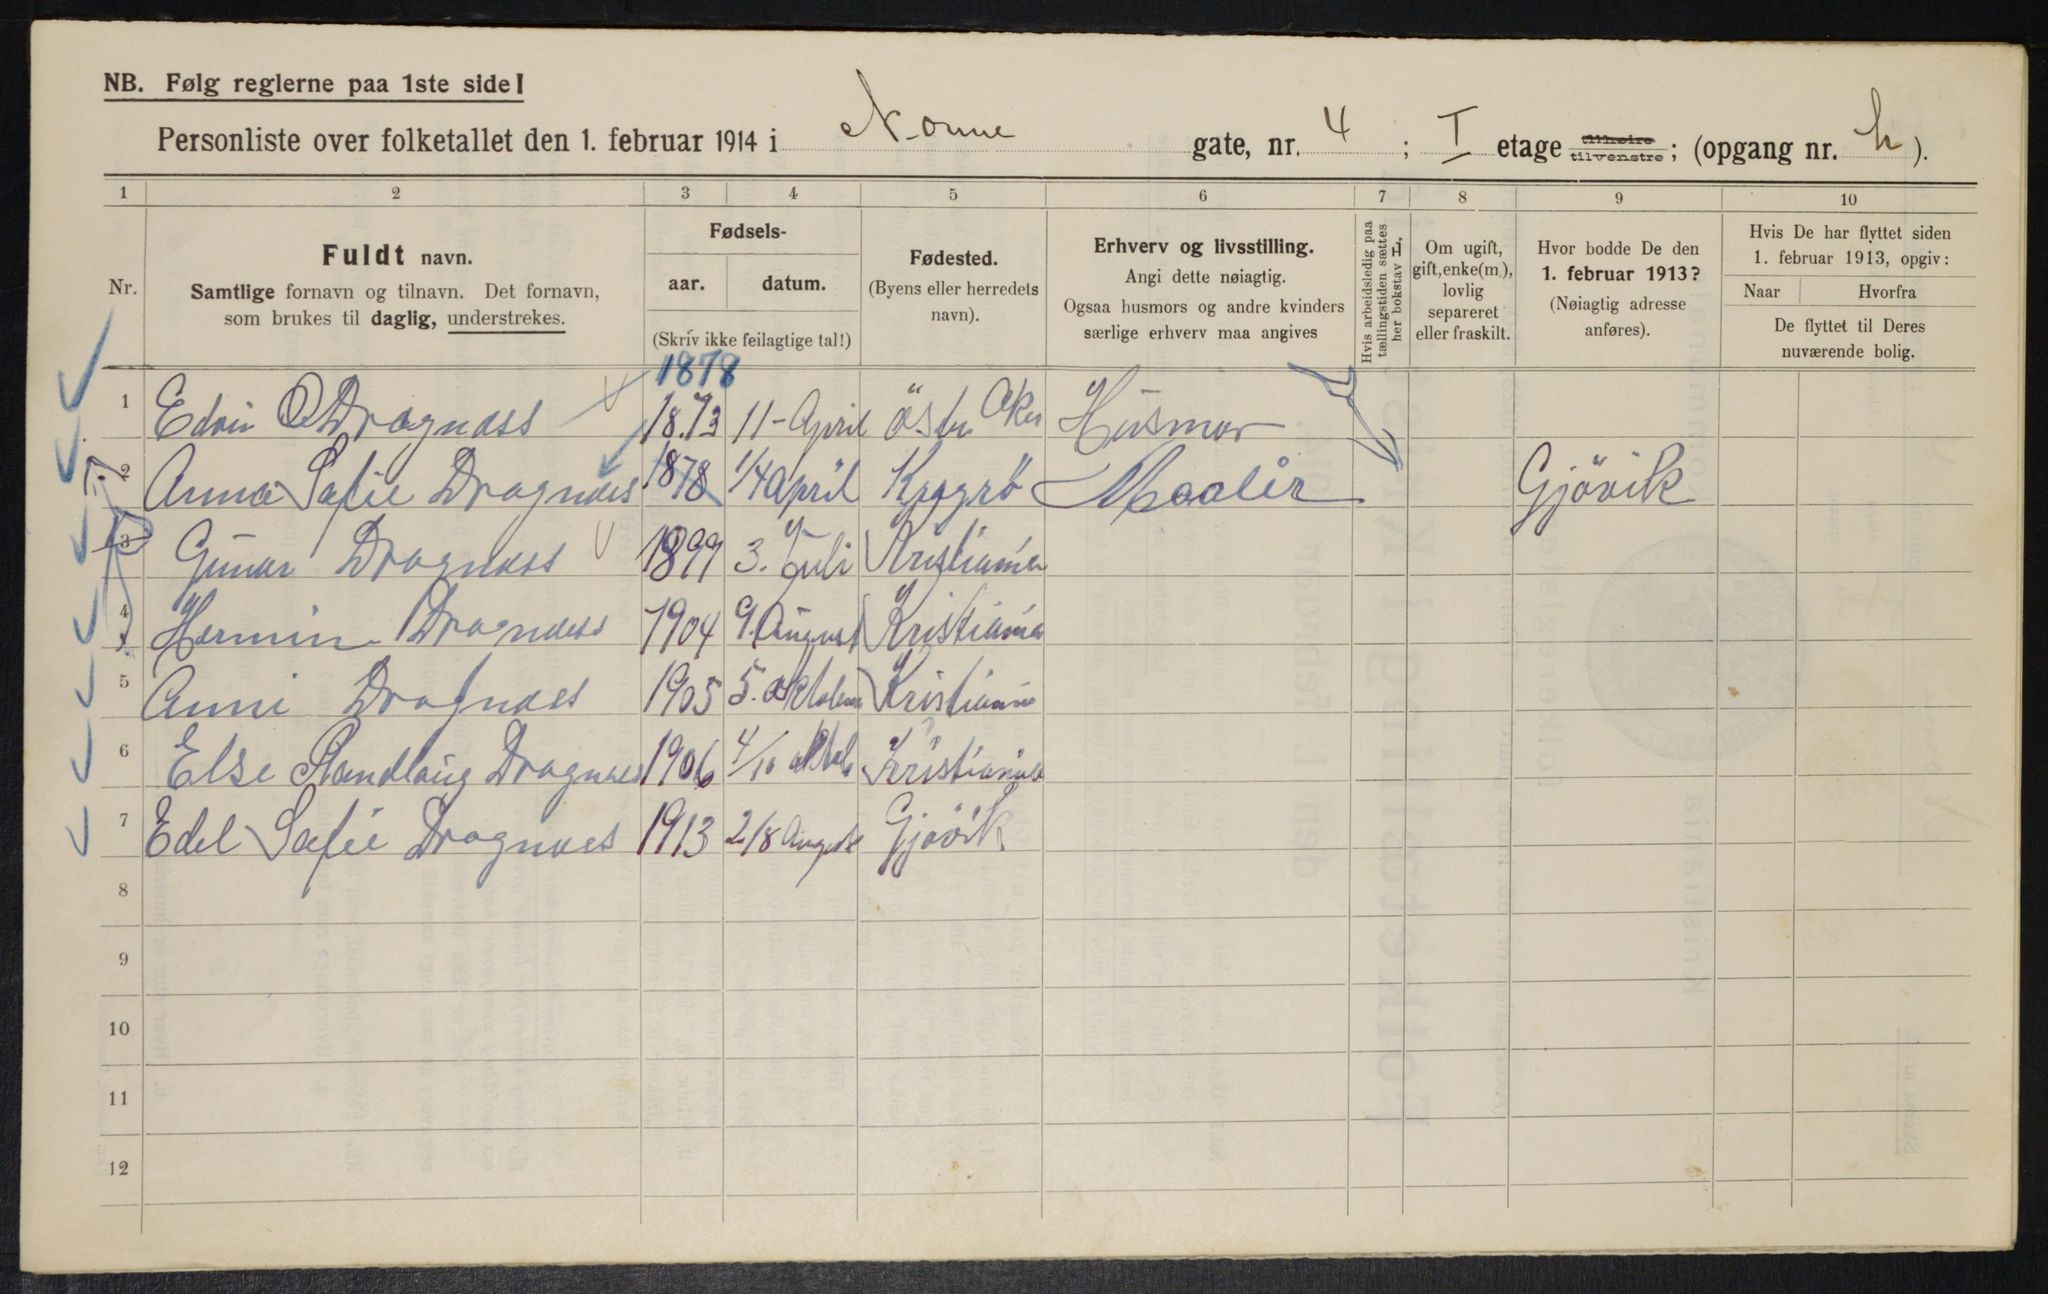 NB. Følg reglerne paa 1ste side!
Personliste over folketallet den 1. februar 1914 i Nonne gate, nr. 4 ; I etage tilhøire tilvenstre ; (opgang nr. h ).
1 2 3 4 5 6 7 8 9 10
Nr.
Fuldt navn.
Samtlige fornavn og tilnavn. Det fornavn,
som brukes til daglig, understrekes.
Fødsels-
aar. datum.
(Skriv ikke feilagtige tal!)
Fødested.
(Byens eller herredets
navn).
Erhverv og livsstilling.
Angi dette nøiagtig.
Ogsaa husmors og andre kvinders
særlige erhverv maa angives
Hvis arbeidsledig paa
tællingstiden sættes
her bokstav L.
Om ugift,
gift, enke(m.),
lovlig
separeret
eller fraskilt.
Hvor bodde De den
1. februar 1913?
(Nøiagtig adresse
anføres).
Hvis De har flyttet siden
1. februar 1913, opgiv:
Naar Hvorfra
De flyttet til Deres
nuværende bolig.
1878
1 Edvin O Dragnæss 1873 11-April östr Aker Husmor
2 Anna Safie Dragnæs 1878 1/4 April Kragrö Maaler Gjövik
3 Gunar Dragnæss 1899 3. Juli Kristiania
4 Hermin Dragnæss 1904 9. August Kristiania
5 Anni Dragnæs 1905 5. oktober Kristiania
6 Else Dragnæs 1906 4/10 oktob Kristiania
7 Edel Safie Dragnæs 1913 2/8 August Gjövik
8
9
10
11
12